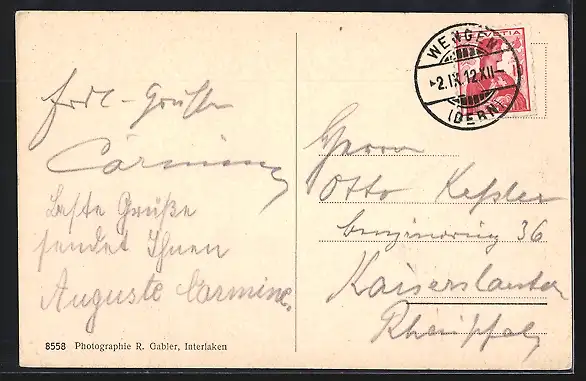 frdl. Grüße
Carmine
Beste Grüße
sendet Ihnen
Auguste Carmine.
8558 Photographie R. Gabler, Interlaken
HELVETIA
WENGEN
2.IX.12.XII-
(BERN)
Herrn
Otto Kessler
36
Kaiserslautern
Rheinpfalz